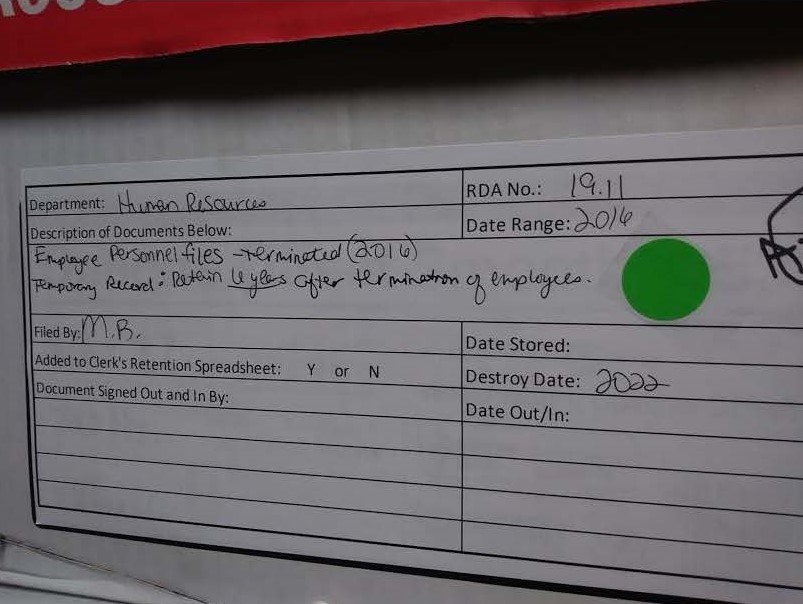 Department: Human Resources
RDA No.: 19.11
Description of Documents Below:
Date Range: 2016
Employee Personnel files - terminated (2016)
Temporary Record: Retain 6 years after termination of employees.
Filed By: M.B.
Date Stored:
Added to Clerk's Retention Spreadsheet: Y or N
Destroy Date: 2022
Document Signed Out and In By:
Date Out/In: